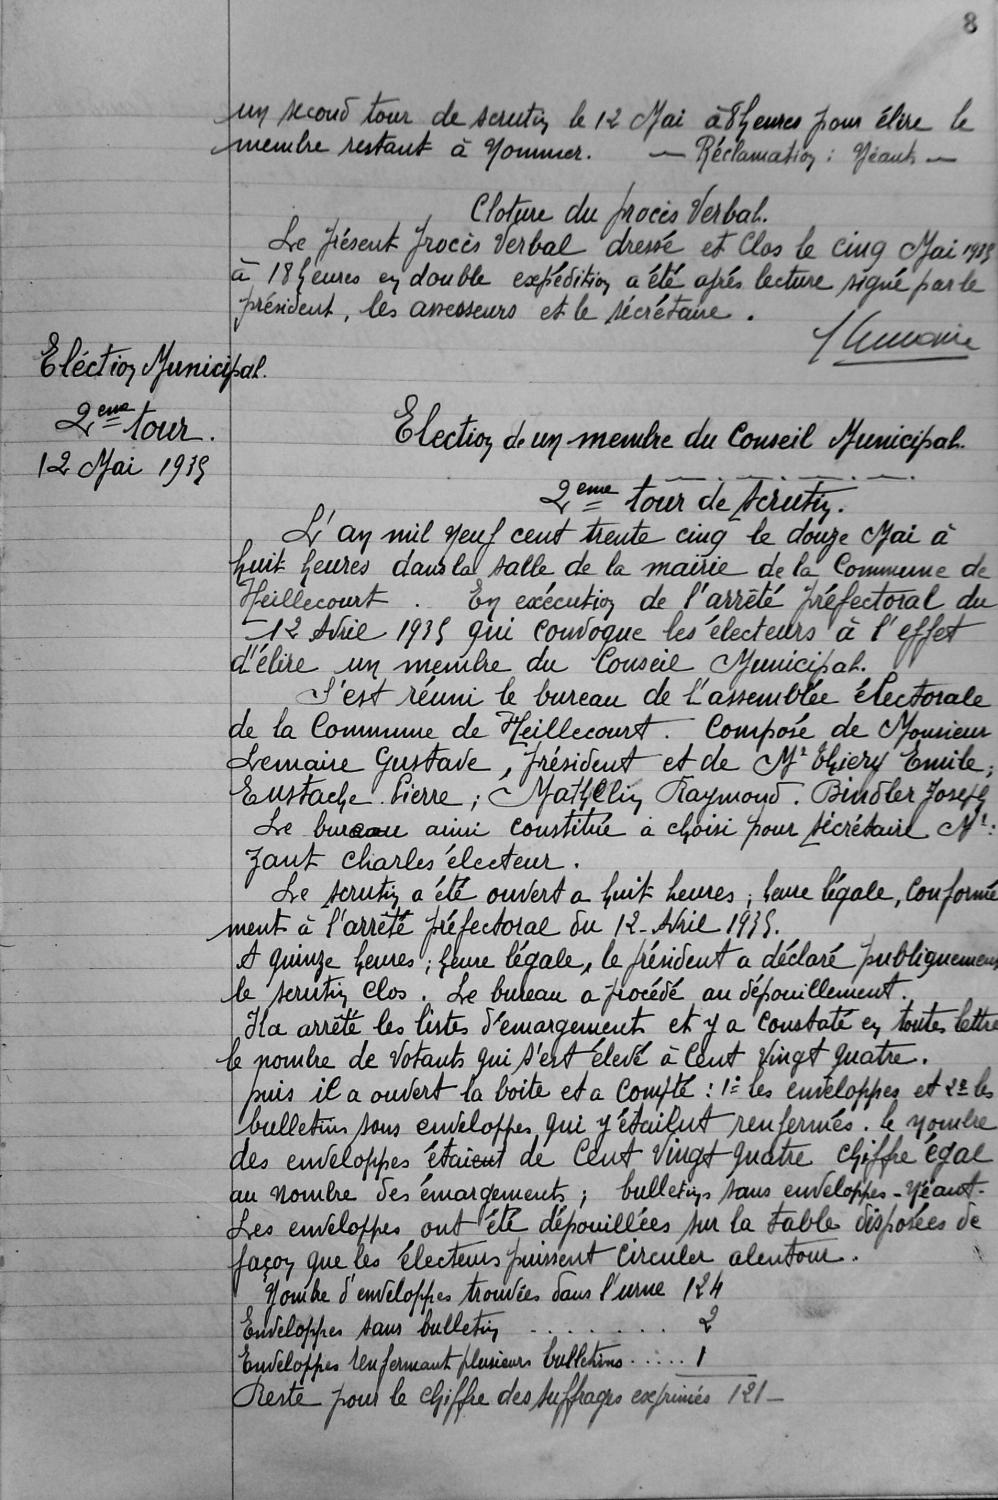 8
un second tour de scrutin le 12 Mai à 8 heures pour élire le
membre restant à Nommer. — Réclamation : Néant —
Cloture du procès Verbal.
Le présent procès Verbal dressé et Clos le cinq Mai 1935
à 18 heures en double expédition a été aprés lecture signé par le
président, les assesseurs et le sécrétaire.
Lemaire
Eléction Municipal.
2eme tour.
12 Mai 1935
Election de un membre du Conseil Municipal.
2eme tour de scrutin.
L'an mil neuf cent trente cinq le douze Mai à
huit heures dans la salle de la mairie de la Commune de
Heillecourt. En exécution de l'arrêté préfectoral du
12 Avril 1935 qui convoque les électeurs à l'effet
d'élire un membre du Conseil Municipal.
S'est réuni le bureau de l'assemblée électorale
de la Commune de Heillecourt. Composé de Monsieur
Lemaire Gustave, président et de Mr Thiery Emile;
Eustache Pierre; Mathelin Raymond. Bindler Joseph
Le bureau ainsi constitué a choisi pour sécrétaire Mr:
Zant Charles électeur.
Le scrutin a été ouvert a huit heures; heure légale, Conformé
ment à l'arrêté préfectoral du 12 Avril 1935.
A quinze heures; heure légale, le président a déclaré publiquement
le scrutin clos. Le bureau a procédé au dépouillement.
Il a arrêté les listes d'émargements et y a constaté en toutes lettre
le nombre de votants qui s'est élevé à Cent Vingt quatre.
puis il a ouvert la boite et a Compté : 1º les enveloppes et 2º les
bulletins sans enveloppes qui y étaient renfermés. le nombre
des enveloppes étaient de Cent Vingt quatre chiffre égal
au nombre des émargements; bulletins sans enveloppes - Néant -
Les enveloppes ont été dépouillées sur la table disposées de
façon que les électeurs puissent circuler alentour.
Nombre d'enveloppes trouvées dans l'urne 124
Enveloppes sans bulletin ........ 2
Enveloppes renfermant plusieurs bulletins ..... 1
Reste pour le chiffre des suffrages exprimés 121 —